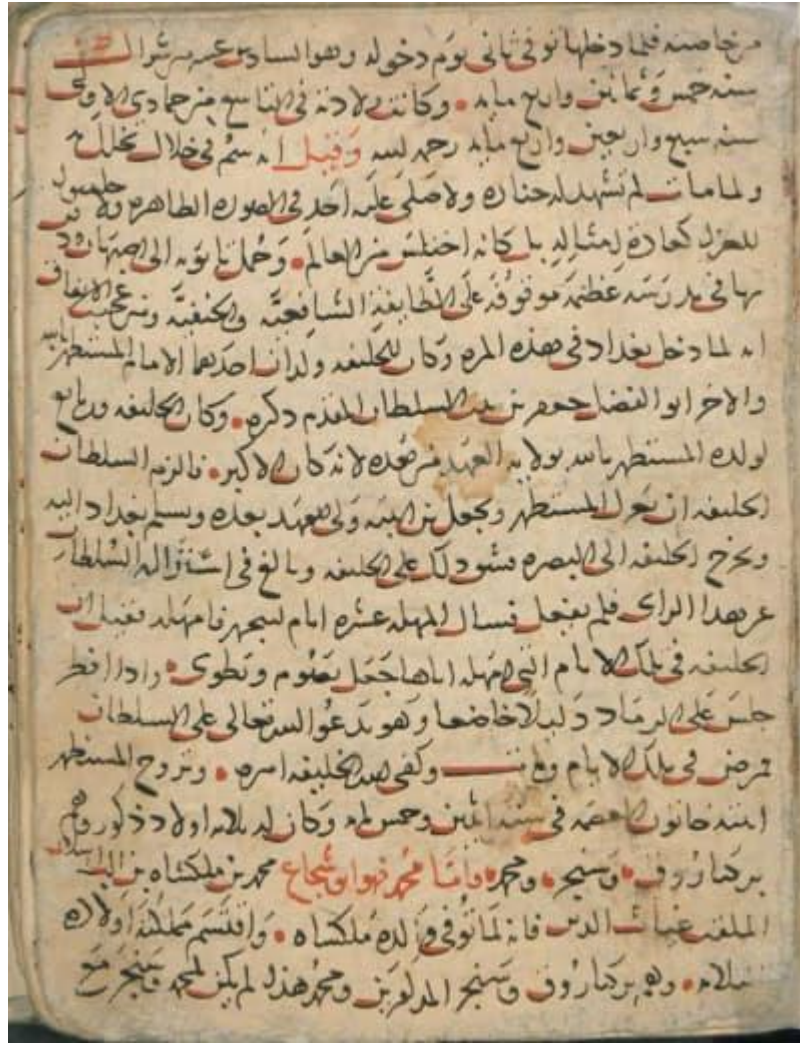 من خاصته فلما دخلها توفي ثاني يوم دخوله وهو السادس عشر من شوال
سنة خمس وثمانين واربع مايه • وكانت ولادته في التاسع من جمادى الاولى
سنة سبع واربعين واربع مايه رحمه الله وقيل انه سم في خلال تخلل به
ولما مات لم تشهد له جنازه ولا صلى عليه احد في الصوره الظاهره ولا جلسوا
للعزا كعادة امثاله بل كانه اختلس من العالم • وحمل تابوته الى اصبهان ودفن
بها في مدرسه عظيمه موقوفة على الطايفة الشافعية والحنفية ومن عجيب الاتفاق
انه لما دخل بغداد في هذه المره وكان للخليفه ولدان احدهما الامام المستظهر بالله
والاخر ابو الفضل جعفر بن بنت السلطان المقدم ذكره • وكان الخليفه قد بايع
لولده المستظهر بالله بولايه العهد من بعده لانه كان الاكبر • فالزم السلطان
الخليفه ان يعزل المستظهر ويجعل بن ابنته ولي العهد بعده ويسلم بغداد اليه
ويخرج الخليفه الى البصره فشق ذلك على الخليفه وبالغ في استنزال السلطان
عن هذا الراى فلم يفعل فسال المهله عشره ايام ليتجهز فامهله فقيل ان
الخليفه في تلك الايام التي امهله اياها جعل يصوم ويطوى • واذا افطر
جلس على الرماد ذليلا خاضعا وهو يدعو الله تعالى على السلطان
فمرض في تلك الايام ومات وكفى الله الخليفه امره • وتزوج المستظهر
ابنته خاتون العصمه في سنه اثنين وخمس مايه وكان له ثلاثه اولاد ذكور وهم
بركياروق • وسنجر • ومحمد • واما محمد فهو ابو شجاع محمد بن ملكشاه بن الب ارسلان
الملقب غياث الدين فانه لما توفي والده ملكشاه • واقتسم مملكته اولاده
الثلاثه • وهم بركياروق وسنجر المذكورين ومحمد هذا لم يكن لمحمد وسنجر مع